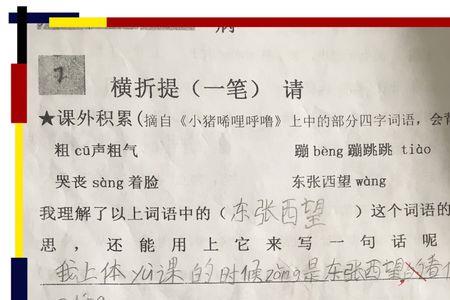 横折提（一笔） 请
★课外积累(摘自《小猪唏哩呼噜》上中的部分四字词语，会背
粗cū声粗气 蹦bèng蹦跳跳 tiào
哭丧 sàng 着脸 东张西望 wàng
我理解了以上词语中的（东张西望）这个词语的
思，还能用上它来写一句话呢
我上体yù课的时候zǒng是东张西望